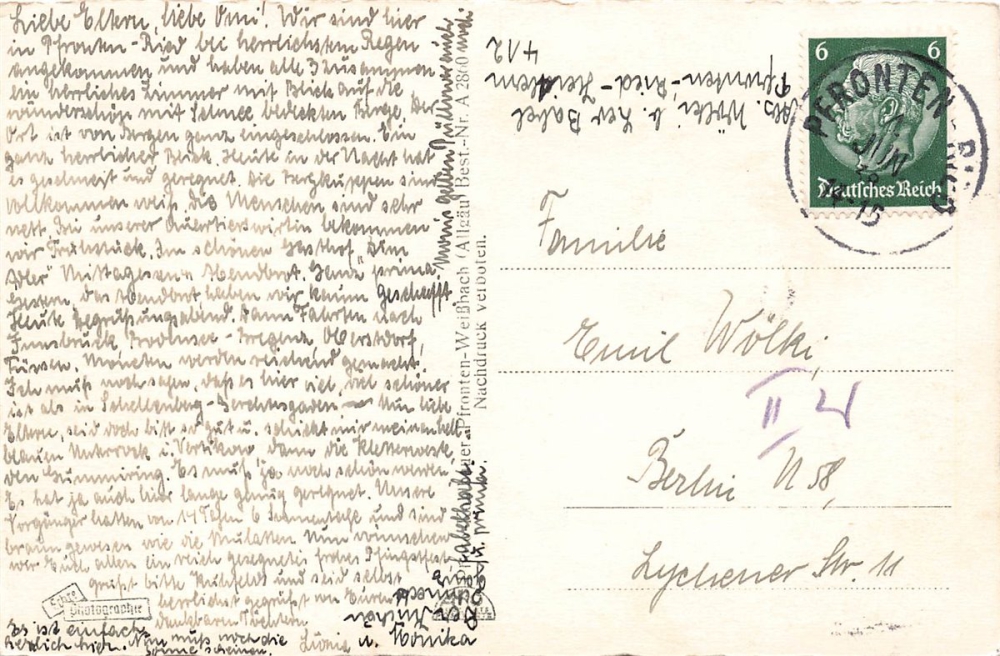 Liebe Eltern, liebe Omi! Wir sind hier
in Pfronten-Ried bei herrlichstem Regen
angekommen und haben alle 3 zusammen
ein herrliches Zimmer mit Blick auf die
wunderschön mit Schnee bedeckten Berge. Der
Ort ist von Bergen ganz eingeschlossen. Ein
ganz herrlicher Blick. Heute in der Nacht hat
es geschneit und geregnet. Die Bergkuppen sind
vollkommen weiß. Die Menschen sind sehr
nett. Bei unserer Quartierswirtin bekommen
wir Frühstück. Im schönen Gasthof "Zum
Adler" Mittag und Abendbrot. Ganz prima.
Gestern, das Abendbrot haben wir kaum geschafft
Heute Begrüßungsabend. Dann Fahrten nach
Innsbruck Bodensee-Bregenz Oberstdorf,
Füssen, München werden reichend gemacht.
Ich muß noch sagen, daß es hier viel, viel schöner
ist als in Schellenberg-Berchtesgaden – Nun liebe
Eltern, seid doch bitte so gut u. schickt mir meinen hell
blauen Unterrock i. Vertikow dann die Kletterweste,
den Gummiring. Es muß ja noch schön werden.
Es hat ja auch hier lange genug geregnet. Unsere
Vorgänger hatten von 14 Tagen 6 Sonnentage und sind
braun gewesen wie die Mulatten Nun wünschen
wir Euch allen ein reich gesegnetes frohes Pfingstfest
grüßt bitte und seid selbst
herzlichst gegrüßt von Euren
dankbaren Töchtern
u. Monika
Es ist einfach
herrlich hier. Nun muß noch die
Sonne scheinen.
Echte
Photographie
Pfronten-Weißbach (Allgäu) Best.-Nr. A 2860
Nachdruck verboten.
u. prima.
Abs. Wölki b. Lev Babel
Pfronten-Ried-
412
6 6
Deutsches Reich
PFRONTEN-RIED
JUN
Familie
Emil Wölki,
II 4
Berlin N 58,
Lychener Str. 11